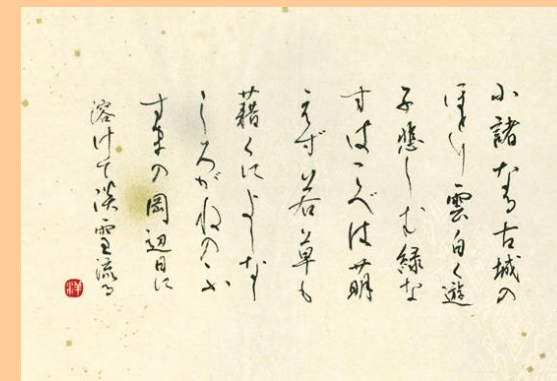 小諸なる古城の
ほとり雲白く遊
子悲しむ緑な
すはこべは萌
えず若草も
藉くによしなし
しろがねのふ
すまの岡辺日に
溶けて淡雪流る
洋